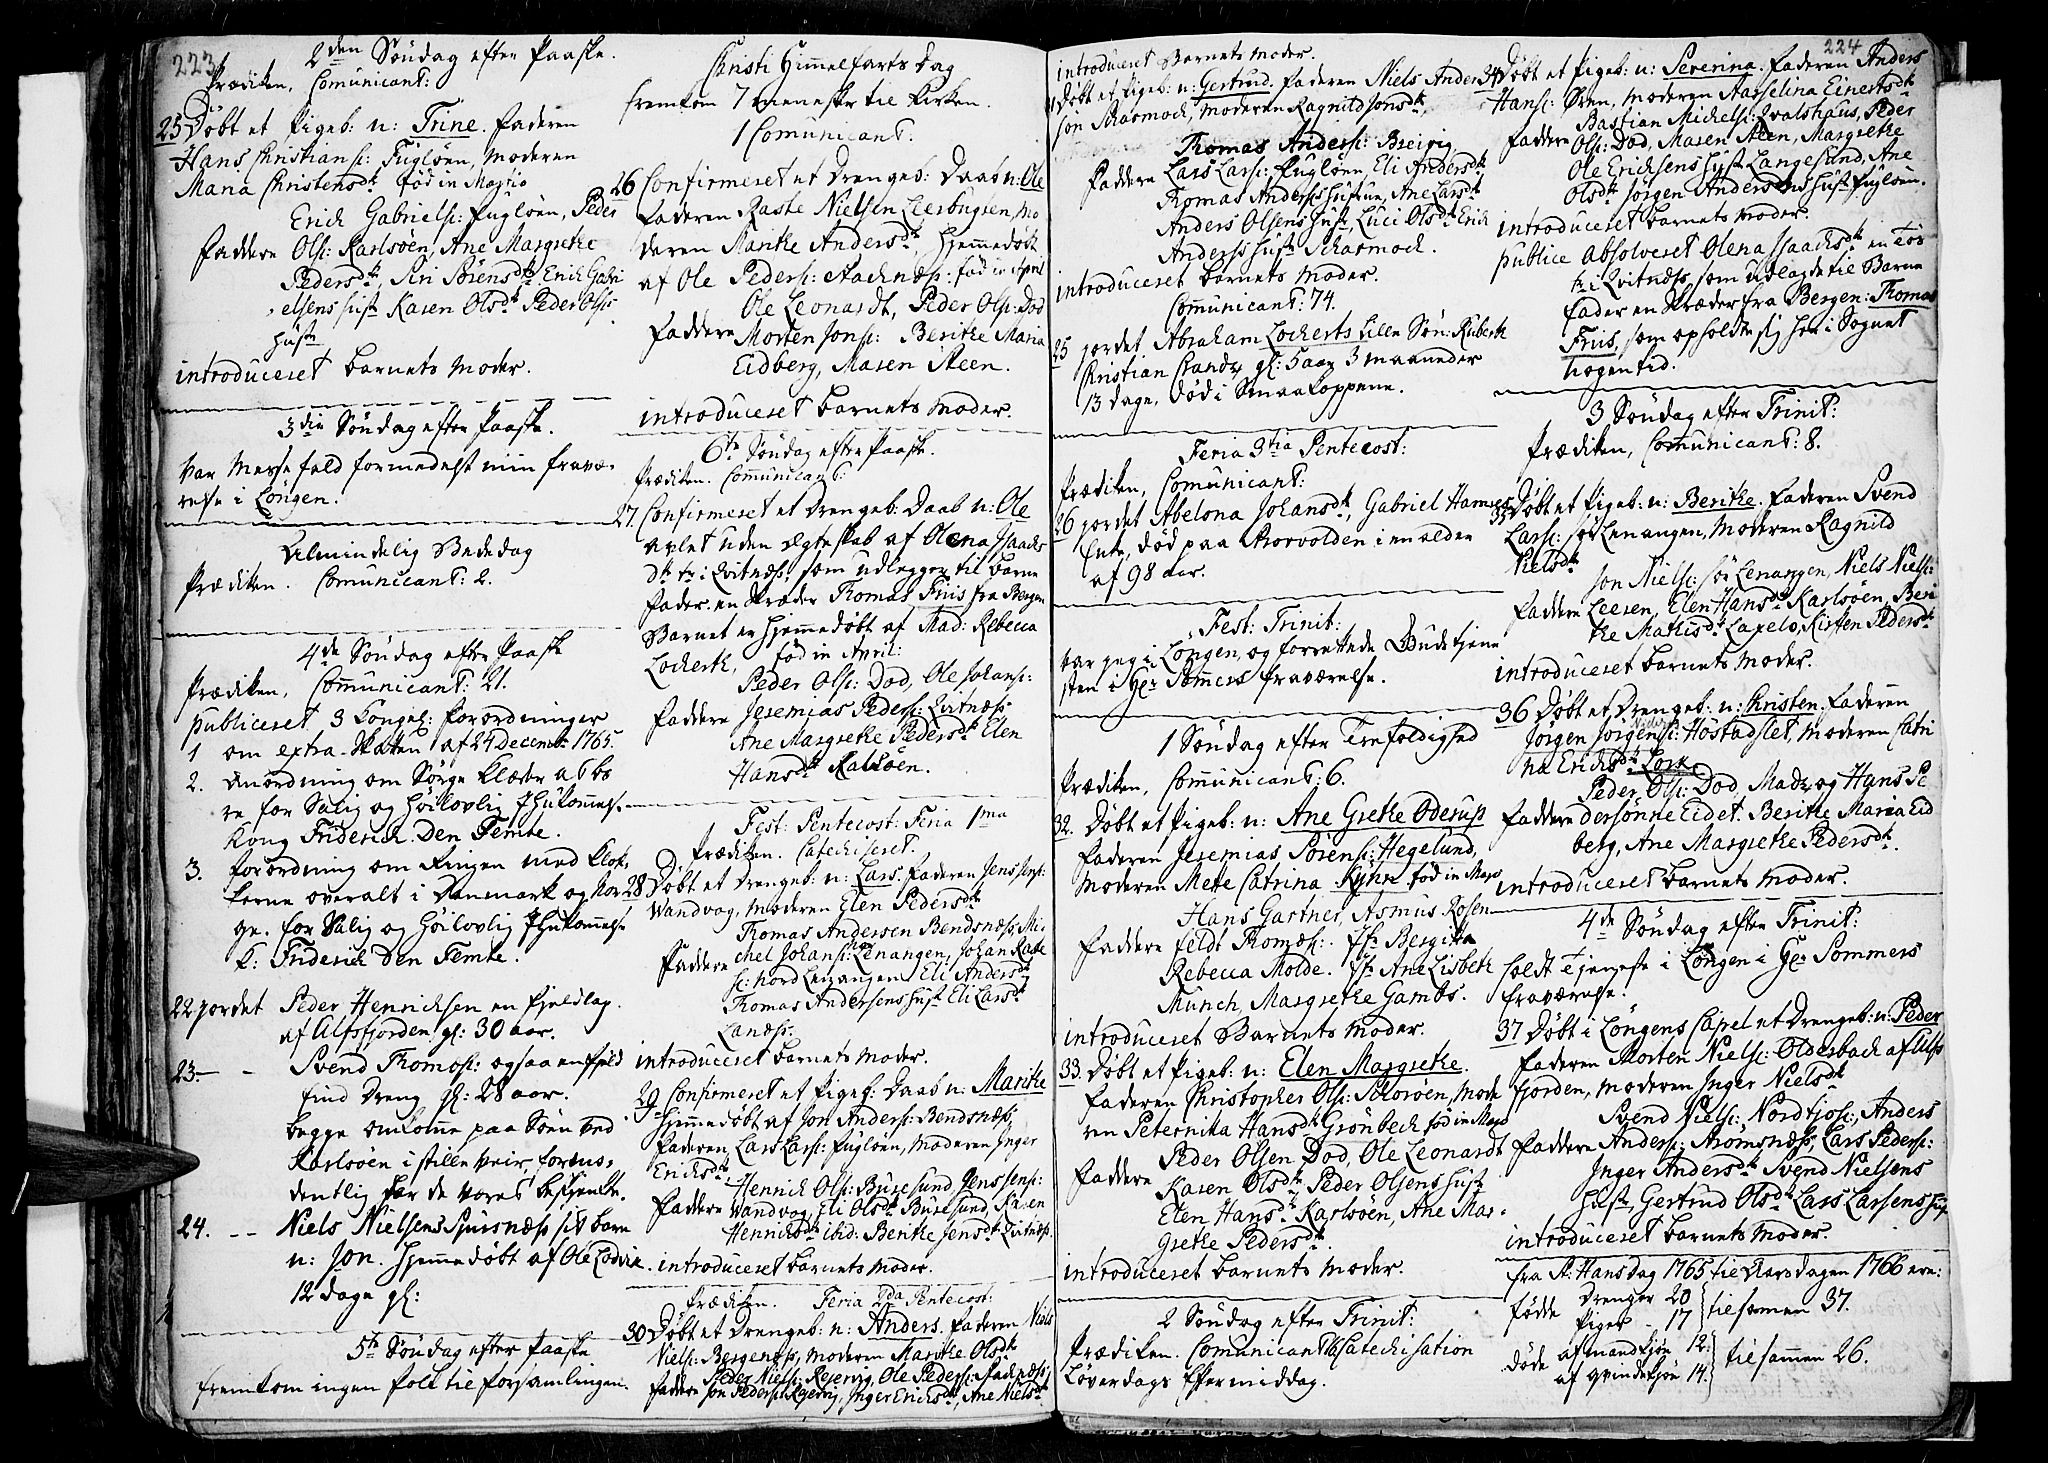 223
2den Søndag efter Paaske.
Prædiken, Comunicant:
25 Døbt et Pigeb: n: Trine. Faderen
Hans Christians: Fugløen, Moderen
Maria Christensdtr fød in Martio
Erich Gabriels: Fugløen, Peder
Faddere Ols: Karlsøen, Ane Margrethe
Pedersdtr, Siri Sørensdtr Erich Gabri
elsens hustr Karen Olsdtr Peder Ols:
hustr
introduceret barnets moder.
3die Søndag efter Paaske.
Var Messefald formedelst min fravæ-
relse i Löngen.
Almindelig Bededag
Prædiken. Comunicant: 2.
4de Søndag efter Paaske
Prædiken, Communicant: 21.
publiceret 3 Kongel: forordninger
1 om extra-Skatten af 24 Decembr 1765.
2. Anordning om Sørge Klæder at bæ
re for Salig og Høilovlig Ihukommels.
Kong Friderich den Femte.
3. Forordning om Ringen med klok
kerne overalt i Danmark og Nor
ge. for Salig og Høilovlig Ihukommelse
K: Friderich den Femte.
22 jordet Peder Henrichsen en fjeldlap.
af Ulfsfjorden gl: 30 aar.
23. - - Svend Thomos: ogsaa en fjeld
find Dreng gl: 28 aar.
begge omkomne paa Søen ved
Karlsöen i stille veir, forme-
dentlig har de været beskjenkte.
24. - - Niels Nielsens Spursnæss sit barn
n: Jon. hjemmedøbt af Ole Lodvic.
12 dage gl:
5te Søndag efter Paaske
fremkom ingen folk til forsamlingen.
Christi Himmelfarts Dag
fremkom 7 menesker til Kirken.
1 Comunicant:
26 Confirmeret et Drengeb: Daab n: Ole
Faderen Raske Nielsen Leerbugten, Mo
deren Marithe Andersdtr, hjemmedøbt
af Ole Peders: Stachnæss: fød in April
Ole Leonardt, Peder Ols: Dod
Faddere Morten Jons: Berithe Maria
Eidberg, Maren Steen.
introduceret barnets moder.
6te Søndag efter Paaske.
Prædiken. Communicant:
27. Confirmeret et Drengeb: Daab n: Ole
avlet uden Ægteskab af Olena Isaachs
dtr i Qvitnæss, som udlegger til barne
fader en Skræder Thomas Friis fra Bergen
Barnet er hjemmedøbt af Mad: Rebecca
Lockertz, fød in April:
Peder Ols: Dod, Ole Johans:
Faddere Jeremias Peders: Qvitnæss
Ane Margrethe Pedersdtr Elen
Hansdtr Karlsöen.
Fest: Pentecost: Feria 1ma
Prædiken. Catechiseret.
28 Døbt et Drengeb: n: Lars. Faderen Jens Jens:
Wandvog, Moderen Elen Pedersdtr
Thomas Andersen Bendsnæss, Mi-
Faddere chel Johans: Lenangen, Johan Raste
s: Nord Lenangen, Eli Andersdtr
Thomas Andersens hustr Eli Larsdtr
Landss.
introduceret barnets moder.
29 Confirmeret et Pigeb: Daab n: Marithe
hjemmedøbt af Jon Anders: Bendsnæss,
Faderen Lars Lars: Fugløen, Moderen Inger
Erichsdtr
Henrich Ols: Buresund, Jens Jens:
Faddere Wandvog, Eli Olsdtr Buresund, Karen
Henrichsdtr ibid: Berithe Jensdtr Qvitnæss.
introduceret barnets moder.
Prædiken. Feria 2da Pentecost:
30 Døbt et Drengeb: n: Anders. Faderen Niels
Niels: Bergenss, Moderen Marithe Olsdtr
Peder Niels: Reservig, Ole Peders: Stachnæss,
Faddere Jon Peders: Reservig, Inger Erichsdtr, Ane Nielsdtr.
introduceret Barnets moder.
31 Døbt et Pigeb: n: Gertrud. Faderen Niels Ander
sön Skarmoch, moderen Ragnild Jonsdtr,
Thomas Anders: Breivig
Faddere Lars Lars: Fugløen, Eli Andersdtr
Thomas Anderss hustrue, Ane Larsdtr
Anders Olsens hustr, Luci Olsdtr Erich
Anderss hustr Skarmoch.
introduceret barnets moder.
Communicant: 74.
25 jordet Abraham Lockerts lille Søn: Ruberth
Christian Brandz gl: 5 aar 3 maaneder
13 dage, død i Smaakoppene.
Feria 3tia Pentecost:
Prædiken, Comunicant:
26 jordet Abelona Johansdtr, Gabriel Hannes
Enke, død paa Skorvolden i en alder
af 98 aar.
Fest: Trinit:
var jeg i Löngen, og forrettede Gudstjene
sten i Hr: Sommers fraværelse.
1 Søndag efter Trefoldighed
Prædiken, Communicant: 6.
32. Døbt et Pigeb: n: Ane Grethe Oderup
Faderen Jeremias Sørens: Hegelund,
Moderen Mete Catrina Kyhn fød in Majo
Hans Gartner, Asmus Rosen
Faddere feldt Thomæs: Jfr Bergitta
Rebecca Molde. Jfr Ane Lisbeth
Munch, Margrethe Gambs.
introduceret Barnets moder.
33. Døbt et Pigeb: n: Elen Margrethe.
Faderen Christopher Ols: Skorøen, Mode
ren Peternika Hansdtr Grönbech fød in Majo
Peder Olsen Dod, Ole Leonardt
Faddere Karen Olsdtr Peder Olsens hustr
Elen Hansdtr Karlsöen, Ane Mar-
grethe Pedersdtr.
introduceret barnets moder.
2 Søndag efter Trinit:
Prædiken. Comunicant: 16 Catechisation
Løverdags Eftermiddag.
224
34 Døbt et Pigeb: n: Severina. Faderen Anders
Hans: Øren, Moderen Aasselina Einertsdtr
Bastian Michels: Qvalshaus, Peder
Faddere Ols: Dod, Maren Steen, Margrethe
Ole Erichsens hustr Langesund, Ane
Olsdtr Jörgen Andersens hustr Fugløen.
introduceret barnets moder.
publice absolveret Olena Isaachsdtr en Tös
fra Qvitnæss, som udlagde til Barne
fader en Skræder fra Bergen: Thomas
Friis, som opholdte sig her i Sognet
nogen tid.
3 Søndag efter Trinit:
Prædiken, Comunicant: 8.
35 Døbt et Pigeb: n: Berithe. Faderen Svend
Lars: Sør Lenangen, Moderen Ragnild
Nielsdtr
Jon Niels: Sör Lenangen, Niels Niels:
Faddere Leeren, Elen Hansdtr Karlsöen, Beri
the Mathisdtr Laxelv, Kirsten Pedersdtr
introduceret barnets moder.
36 Døbt et Drengeb: n: Christen. Faderen
Jørgen Jørgens: Høstadslet, moderen Catri
na Erichsdtr Lork
Peder Ols: Dod, Madz og Hans Pe
Faddere dersønne Eidet. Berithe Maria Eid
berg, Ane Margrethe Pedersdtr.
introduceret barnets moder.
4de Søndag efter Trinit:
holdt Tjeneste i Löngen i Hr: Sommers
fraværelse.
37 Døbt i Löngens Capel et Drengeb: n: Peder
Faderen Morten Niels: Oldersbach af Ulfs
fjorden, moderen Inger Nielsdtr
Svend Niels: Nordkjos:, Anders
Faddere Anders: Aromsnæss, Lars Peders:
Inger Andersdtr Svend Nielsens
hustr, Gertrud Olsdtr Lars Larsens hust
introduceret barnets moder.
fra St: Hansdag 1765 til Aarsdagen 1766 ere:
fødde Drenger 20
Piger - 17 } tilsamen 37.
døde af mandkjön 12:
af qvindekjön 14. } tilsammen 26.